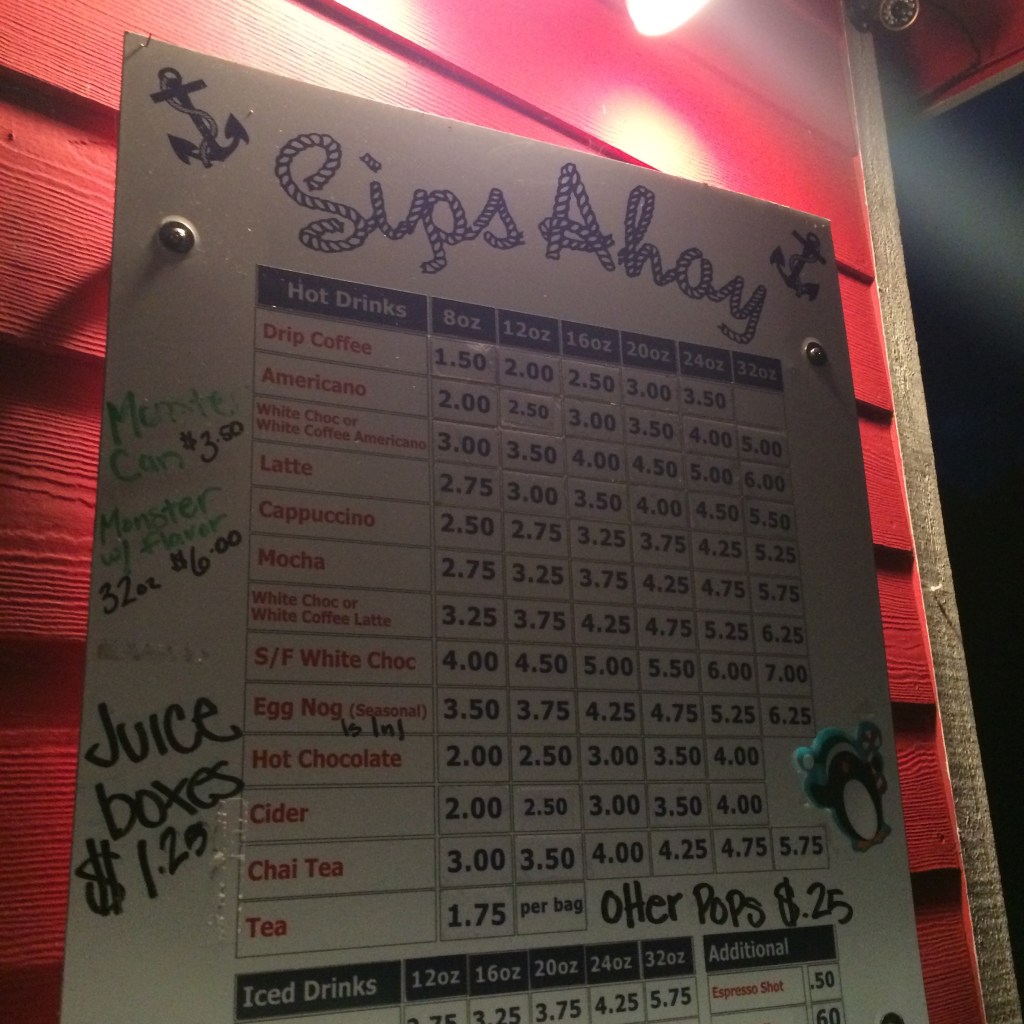 Sips Ahoy
Hot Drinks 8oz 12oz 16oz 20oz 24oz 32oz
Drip Coffee 1.50 2.00 2.50 3.00 3.50
Americano 2.00 2.50 3.00 3.50 4.00 5.00
White Choc or
White Coffee Americano 3.00 3.50 4.00 4.50 5.00 6.00
Latte 2.75 3.00 3.50 4.00 4.50 5.50
Cappuccino 2.50 2.75 3.25 3.75 4.25 5.25
Mocha 2.75 3.25 3.75 4.25 4.75 5.75
White Choc or
White Coffee Latte 3.25 3.75 4.25 4.75 5.25 6.25
S/F White Choc 4.00 4.50 5.00 5.50 6.00 7.00
Egg Nog (Seasonal) 3.50 3.75 4.25 4.75 5.25 6.25
Is In
Hot Chocolate 2.00 2.50 3.00 3.50 4.00
Cider 2.00 2.50 3.00 3.50 4.00
Chai Tea 3.00 3.50 4.00 4.25 4.75 5.75
Tea 1.75 per bag
Otter Pops $.25
Monster
Can $3.50
Monster
w/ flavor
32oz $6.00
Juice
boxes
$1.25
Iced Drinks 12oz 16oz 20oz 24oz 32oz
3.25 3.75 4.25 5.75
Additional
Espresso Shot .50
.60